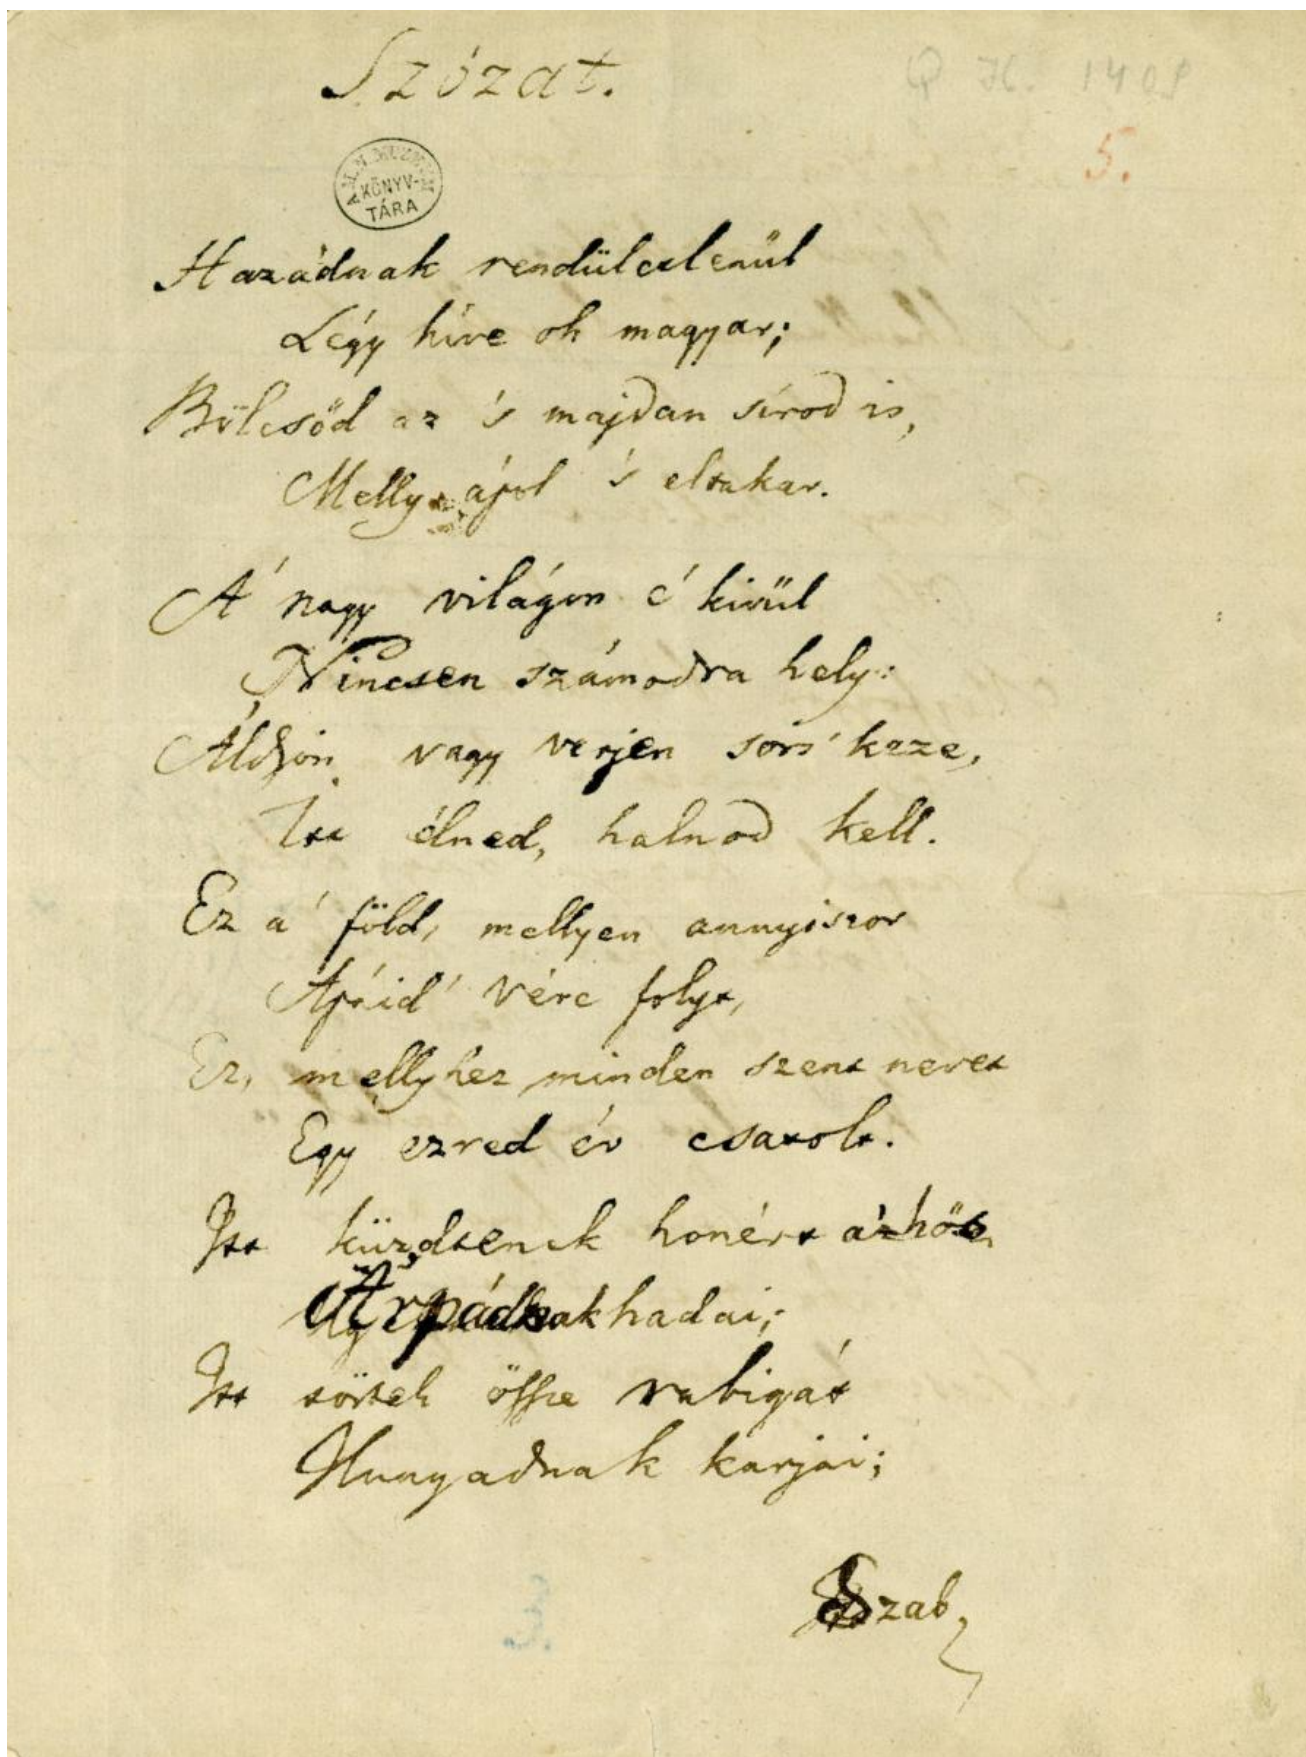 Szózat.
Q H. 1401
5.
A M. N. MUZEUM
KÖNYV-
TÁRA
Hazádnak rendületlenül
Légy híve oh magyar;
Bölcsőd az 's majdan sírod is,
Melly ápol 's eltakar.
A' nagy világon é' kivül
Nincsen számodra hely:
Áldjon vagy verjen sors' keze,
Itt élned, halnod kell.
Ez a' föld, mellyen annyiszor
Apáid' vére folyt,
Ez, mellyhez minden szent nevet
Egy ezred év csatolt.
Itt küzdtenek honért a' hős
Árpádnak hadai;
Itt törtek össze rabigát
Hunyadnak karjai;
Szab